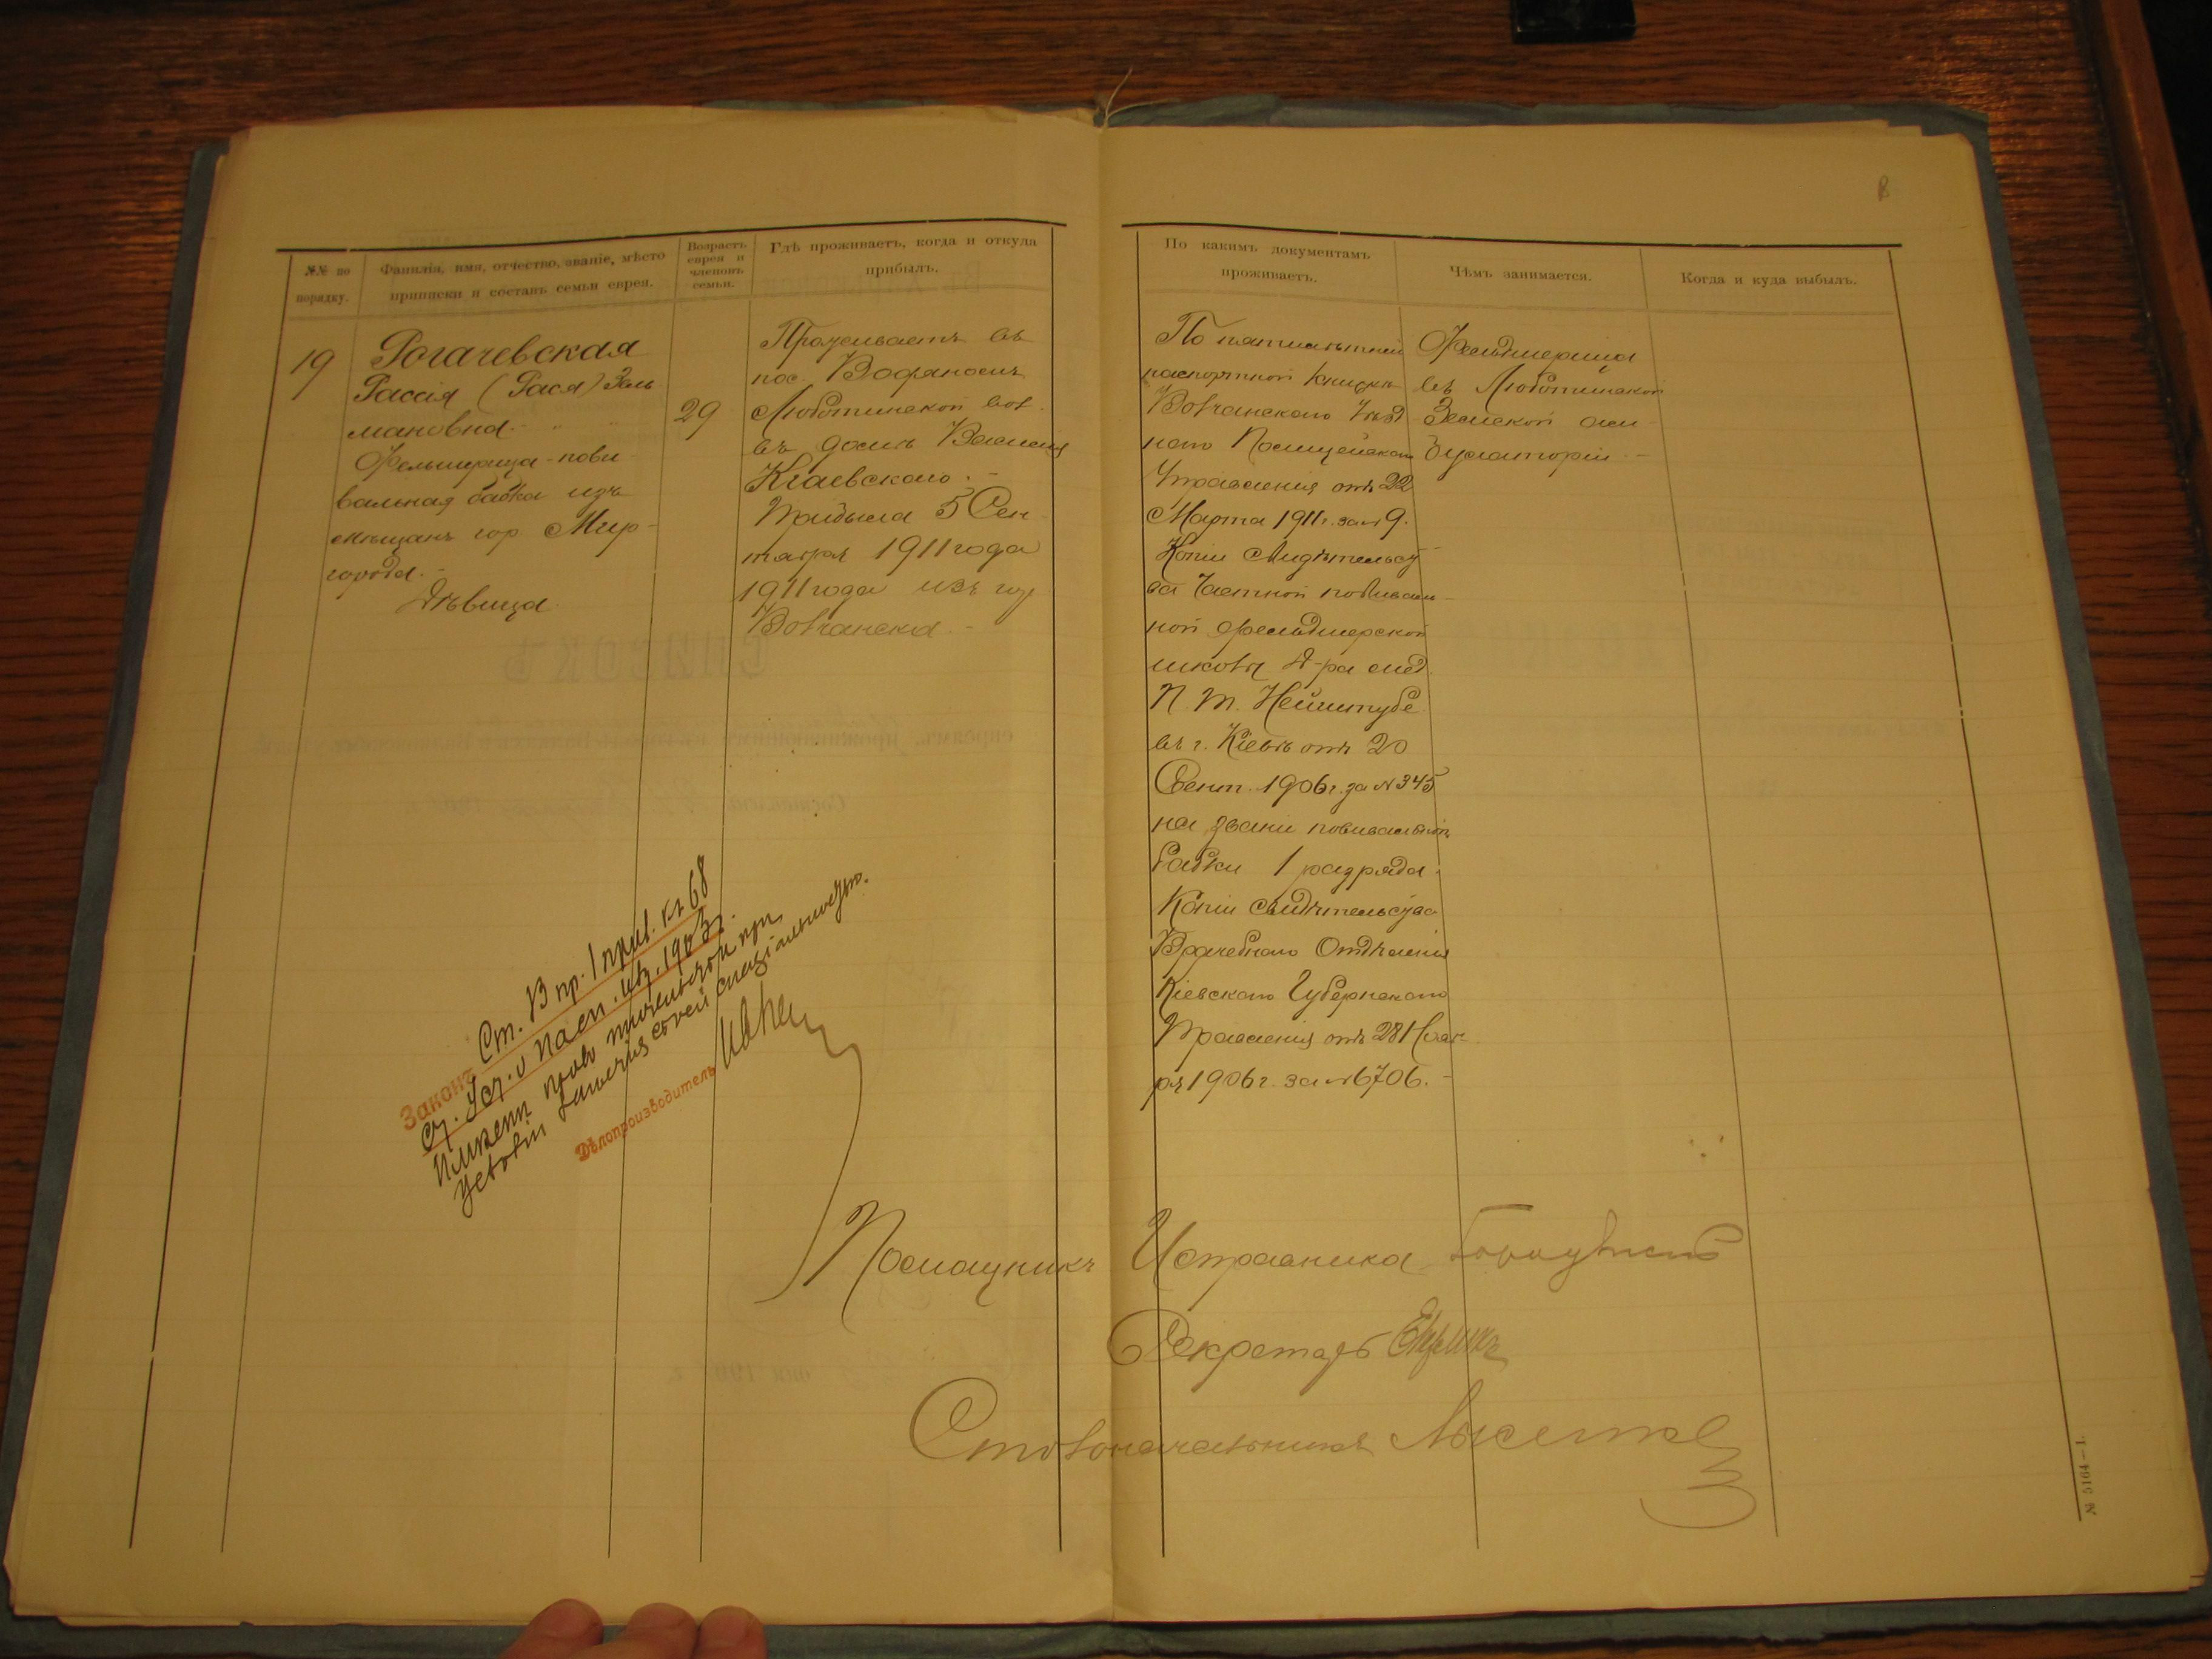 8
№№ по порядку.
Фамилія, имя, отчество, званіе, мѣсто
приписки и составъ семьи еврея.
Возрастъ
еврея и
членовъ
семьи.
Гдѣ проживаетъ, когда и откуда
прибылъ.
По какимъ документамъ
проживаетъ.
Чѣмъ занимается.
Когда и куда выбылъ.
19
Рогачевская
Рассія (Рася) Зель
мановна.
Фельшерица-пови
вальная бабка изъ
мѣщанъ гор. Мир-
города.
Дѣвица
29
Проживаетъ въ
пос.
Люботинской вол.
въ домѣ Василія
Клаевскаго.
Прибыла 5 Сен
тября 1911 года
1911 года изъ гор
Волчанска.
По пятилѣтней
паспортной книжкѣ
Волчанскаго Уѣзд
наго Полицейскаго
Управленія отъ 22
Марта 1911 г. за № 9.
Копіи Свидѣтельст
ва Частной повиваль-
ной фельдшерской
школы Д-ра мед.
П. Т. Нейштубе
въ г. Кіевѣ отъ 20
Сент. 1906 г. за № 345
на званіе повивальной
бабки 1 разряда.
Копіи свидѣтельства
Врачебнаго Отдѣленія
Кіевскаго Губернскаго
Правленія отъ 28 Нояб-
ря 1906 г. за № 6706.
Фельдшерица
въ Люботинской
Земской ам-
булаторіи.
Законъ Ст. 13 пр. 1 прил. къ 68
ст. Уст. о пасп. изд. 1903 г.
Имѣетъ право жительства при
условіи занятія своей спеціальностью.
Дѣлопроизводитель
Помощникъ Исправника
Секретарь
Столоначальникъ
№ 5164—1.